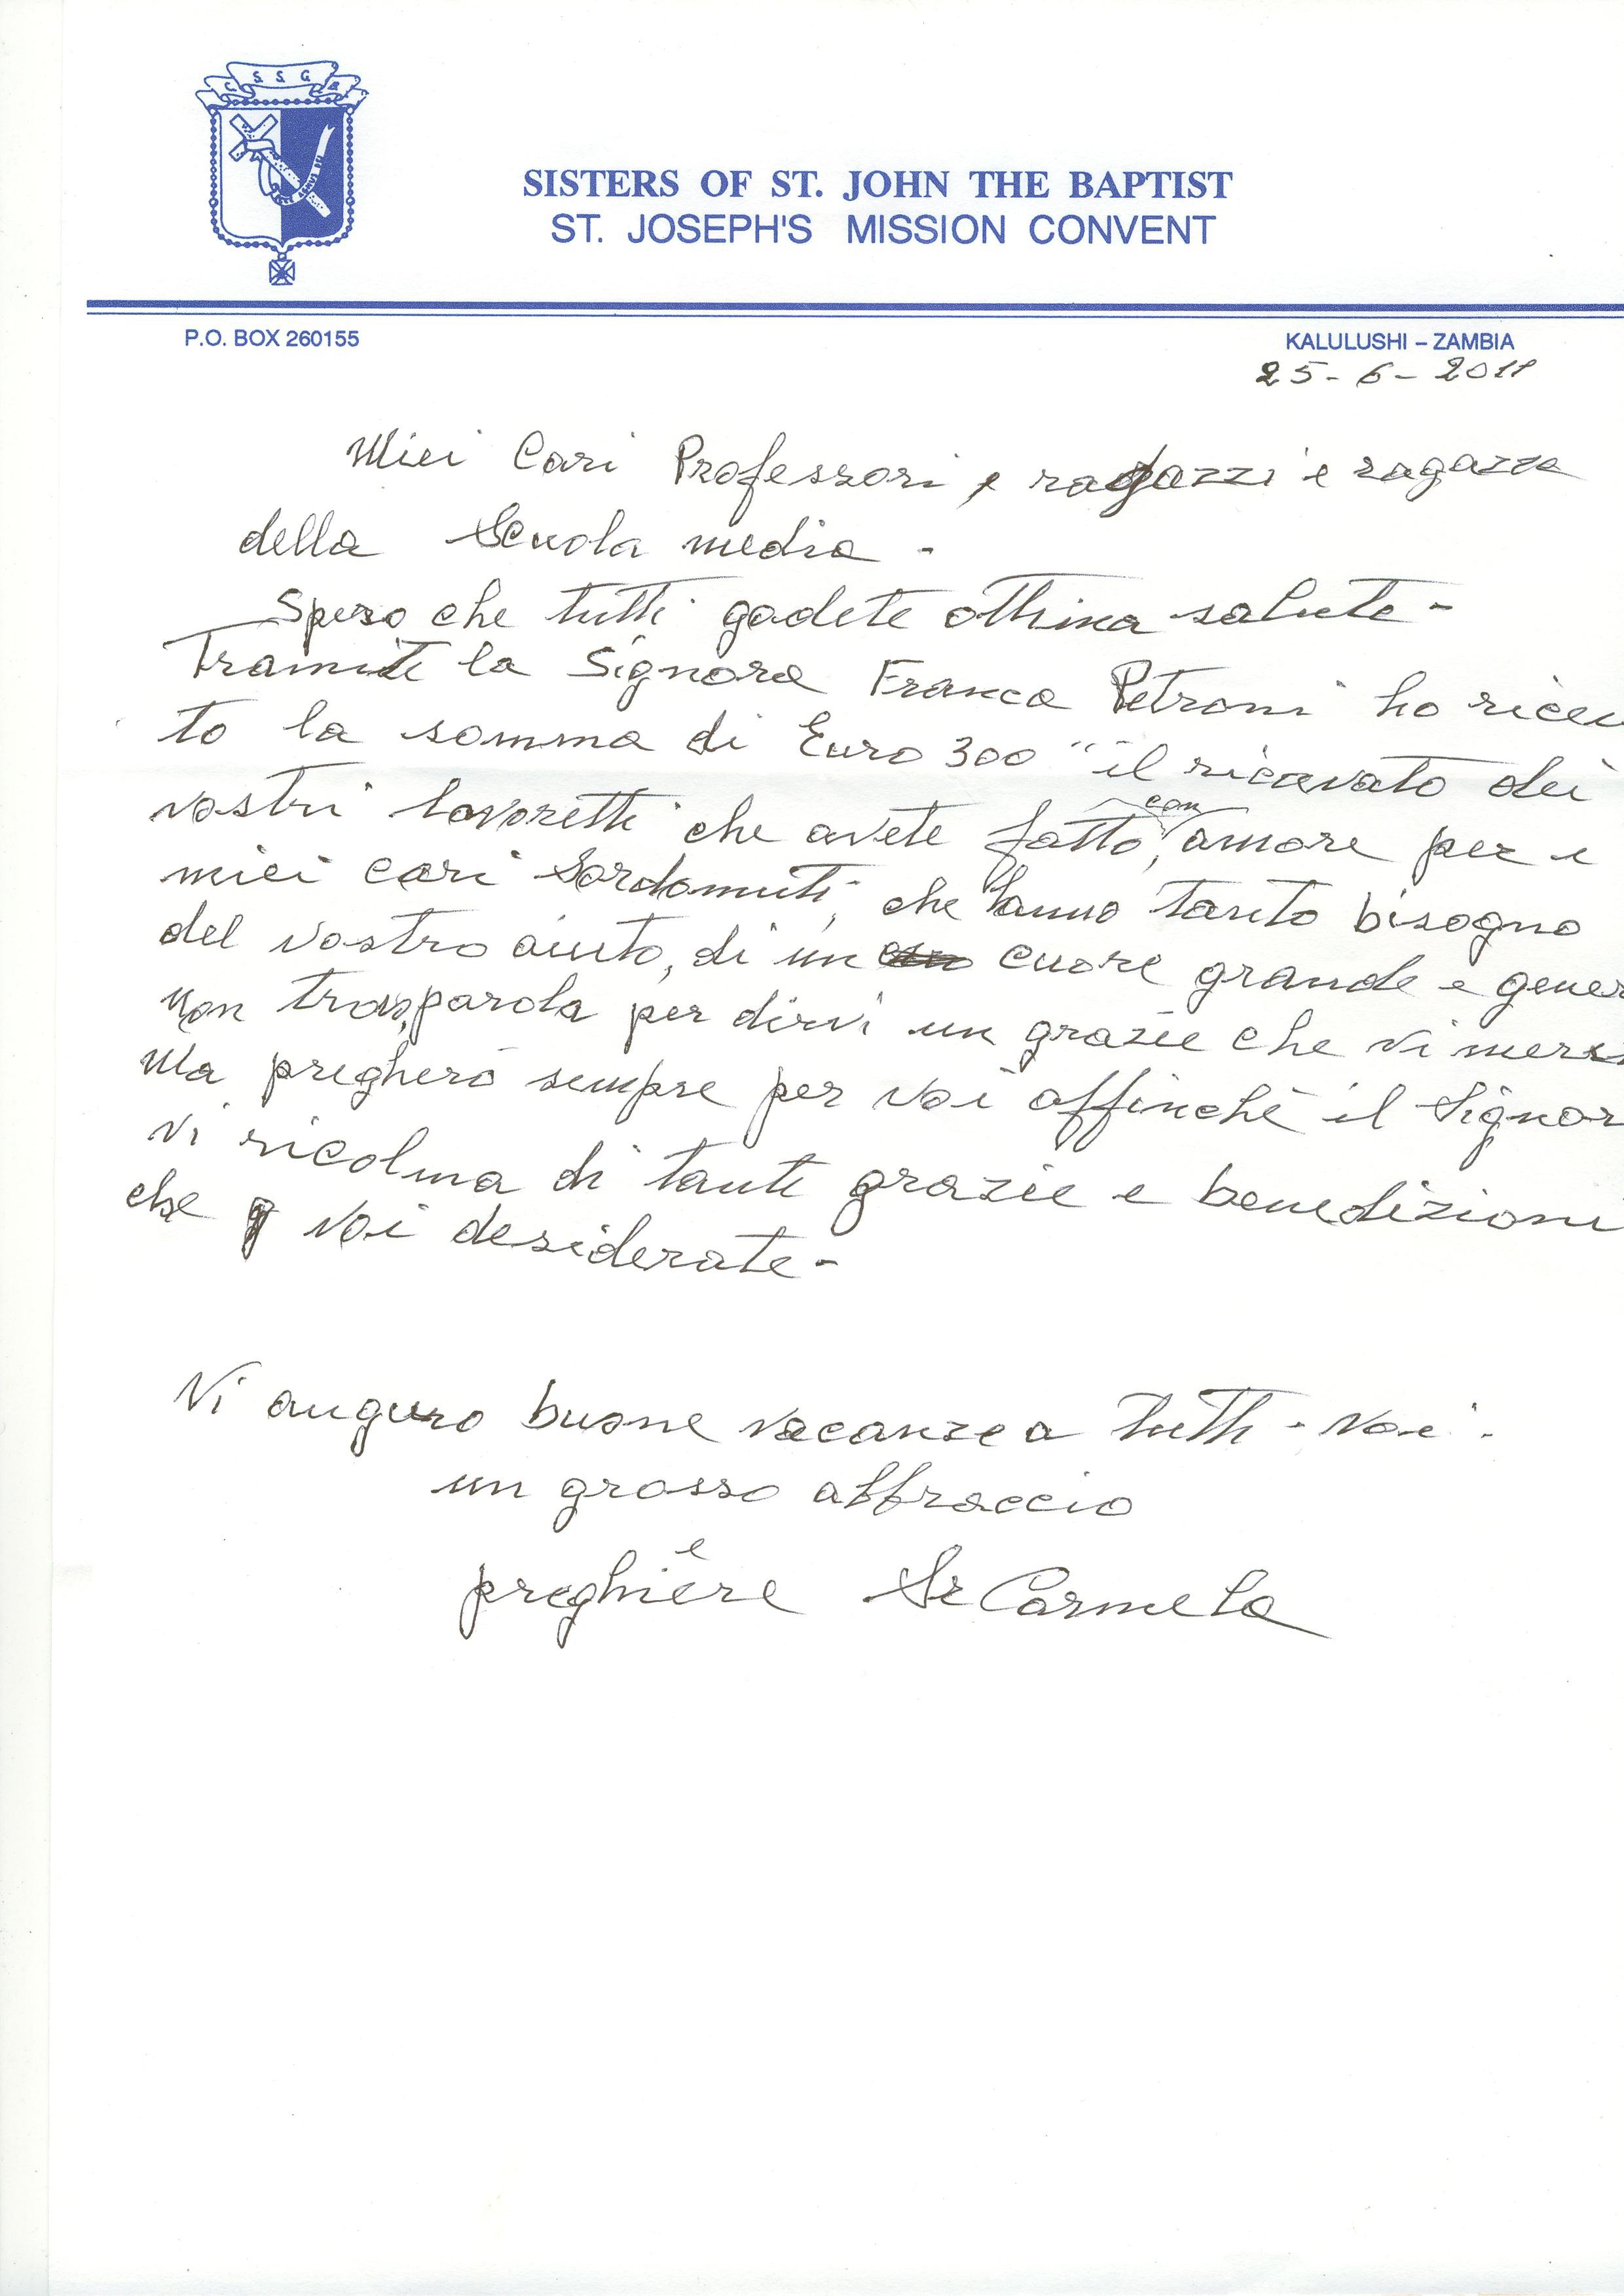 C. S S G B
SISTERS OF ST. JOHN THE BAPTIST
ST. JOSEPH'S MISSION CONVENT
P.O. BOX 260155
KALULUSHI – ZAMBIA
25-6-2011
Miei Cari Professori e ragazzi e ragazze
della Scuola media -
Spero che tutti godete ottima salute -
Tramite la Signora Franca Petroni ho riceu
to la somma di Euro 300 "il ricavato dei
vostri lavoretti che avete fatto, con amore per i
miei cari Sordomuti, che hanno tanto bisogno
del vostro aiuto, di un cuore grande e gener
non trovo parola per dirvi un grazie che vi meri
Ma pregherò sempre per voi affinchè il Signor
vi ricolma di tante grazie e benedizioni
che voi desiderate -
Vi auguro buone vacanze a tutti - voi -
un grosso abbraccio
e
preghiere Sr Carmela